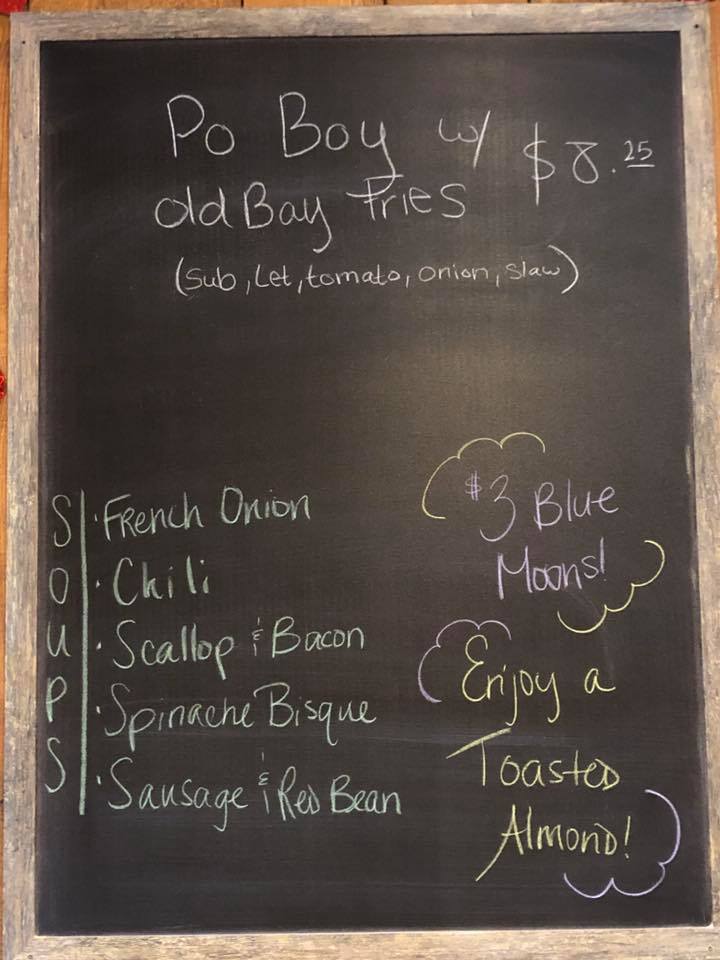 Po Boy w/ $8.25
old Bay Fries
(Sub, Let, tomato, onion, slaw)
SOUPS
· French Onion
· Chili
· Scallop & Bacon
· Spinache Bisque
· Sausage & Red Bean
$3 Blue
Moons!
Enjoy a
Toasted
Almond!